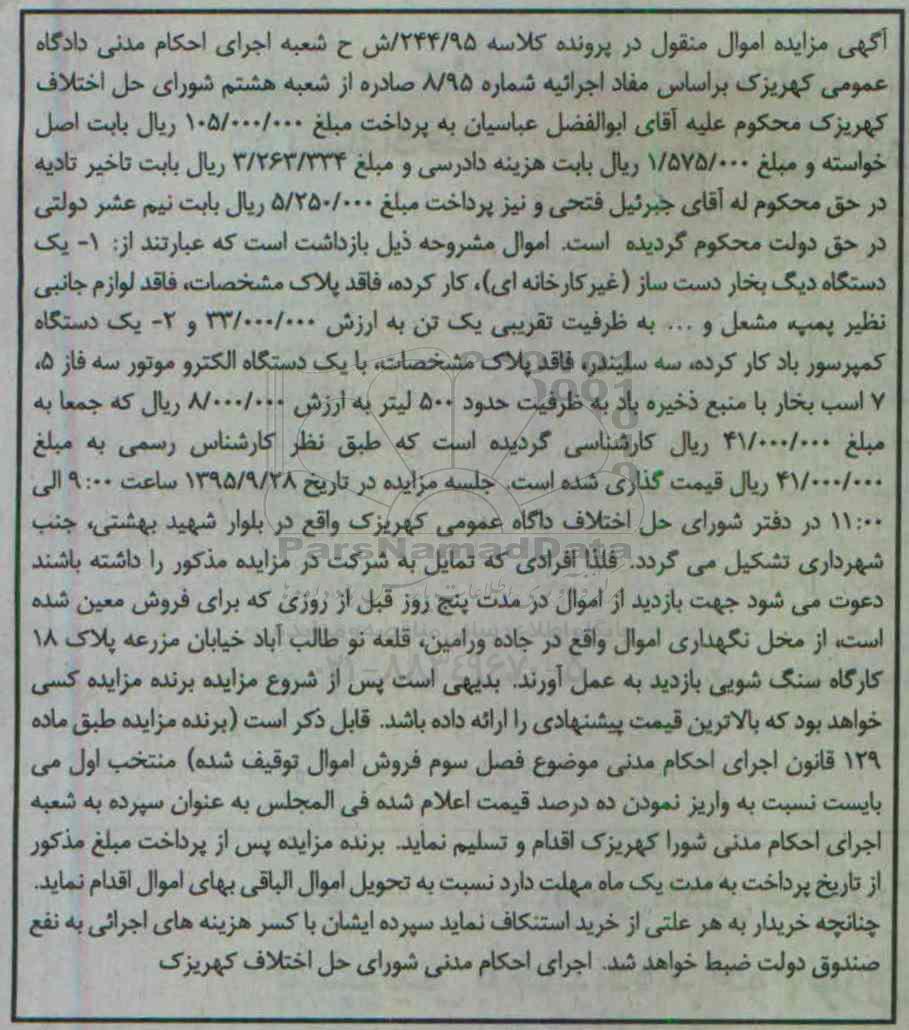 آگهی مزایده اموال منقول در پرونده کلاسه ۲۴۴/۹۵/ش ح شعبه اجرای احکام مدنی دادگاه
عمومی کهریزک براساس مفاد اجرائیه شماره ۸/۹۵ صادره از شعبه هشتم شورای حل اختلاف
کهریزک محکوم علیه آقای ابوالفضل عباسیان به پرداخت مبلغ ۱۰۵/۰۰۰/۰۰۰ ریال بابت اصل
خواسته و مبلغ ۱/۵۷۵/۰۰۰ ریال بابت هزینه دادرسی و مبلغ ۳/۲۶۳/۳۳۴ ریال بابت تاخیر تادیه
در حق محکوم له آقای جبرئیل فتحی و نیز پرداخت مبلغ ۵/۲۵۰/۰۰۰ ریال بابت نیم عشر دولتی
در حق دولت محکوم گردیده است. اموال مشروحه ذیل بازداشت است که عبارتند از: ۱- یک
دستگاه دیگ بخار دست ساز (غیرکارخانه ای)، کار کرده، فاقد پلاک مشخصات، فاقد لوازم جانبی
نظیر پمپ، مشعل و ... به ظرفیت تقریبی یک تن به ارزش ۳۳/۰۰۰/۰۰۰ و ۲- یک دستگاه
کمپرسور باد کار کرده، سه سلیندر، فاقد پلاک مشخصات، با یک دستگاه الکترو موتور سه فاز ۵،
۷ اسب بخار با منبع ذخیره باد به ظرفیت حدود ۵۰۰ لیتر به ارزش ۸/۰۰۰/۰۰۰ ریال که جمعا به
مبلغ ۴۱/۰۰۰/۰۰۰ ریال کارشناسی گردیده است که طبق نظر کارشناس رسمی به مبلغ
۴۱/۰۰۰/۰۰۰ ریال قیمت گذاری شده است. جلسه مزایده در تاریخ ۱۳۹۵/۹/۲۸ ساعت ۹:۰۰ الی
۱۱:۰۰ در دفتر شورای حل اختلاف داگاه عمومی کهریزک واقع در بلوار شهید بهشتی، جنب
شهرداری تشکیل می گردد. فلذا افرادی که تمایل به شرکت در مزایده مذکور را داشته باشند
دعوت می شود جهت بازدید از اموال در مدت پنج روز قبل از روزی که برای فروش معین شده
است، از محل نگهداری اموال واقع در جاده ورامین، قلعه نو طالب آباد خیابان مزرعه پلاک ۱۸
کارگاه سنگ شویی بازدید به عمل آورند. بدیهی است پس از شروع مزایده برنده مزایده کسی
خواهد بود که بالاترین قیمت پیشنهادی را ارائه داده باشد. قابل ذکر است (برنده مزایده طبق ماده
۱۲۹ قانون اجرای احکام مدنی موضوع فصل سوم فروش اموال توقیف شده) منتخب اول می
بایست نسبت به واریز نمودن ده درصد قیمت اعلام شده فی المجلس به عنوان سپرده به شعبه
اجرای احکام مدنی شورا کهریزک اقدام و تسلیم نماید. برنده مزایده پس از پرداخت مبلغ مذکور
از تاریخ پرداخت به مدت یک ماه مهلت دارد نسبت به تحویل اموال الباقی بهای اموال اقدام نماید.
چنانچه خریدار به هر علتی از خرید استنکاف نماید سپرده ایشان با کسر هزینه های اجرائی به نفع
صندوق دولت ضبط خواهد شد. اجرای احکام مدنی شورای حل اختلاف کهریزک
ParsNamadData